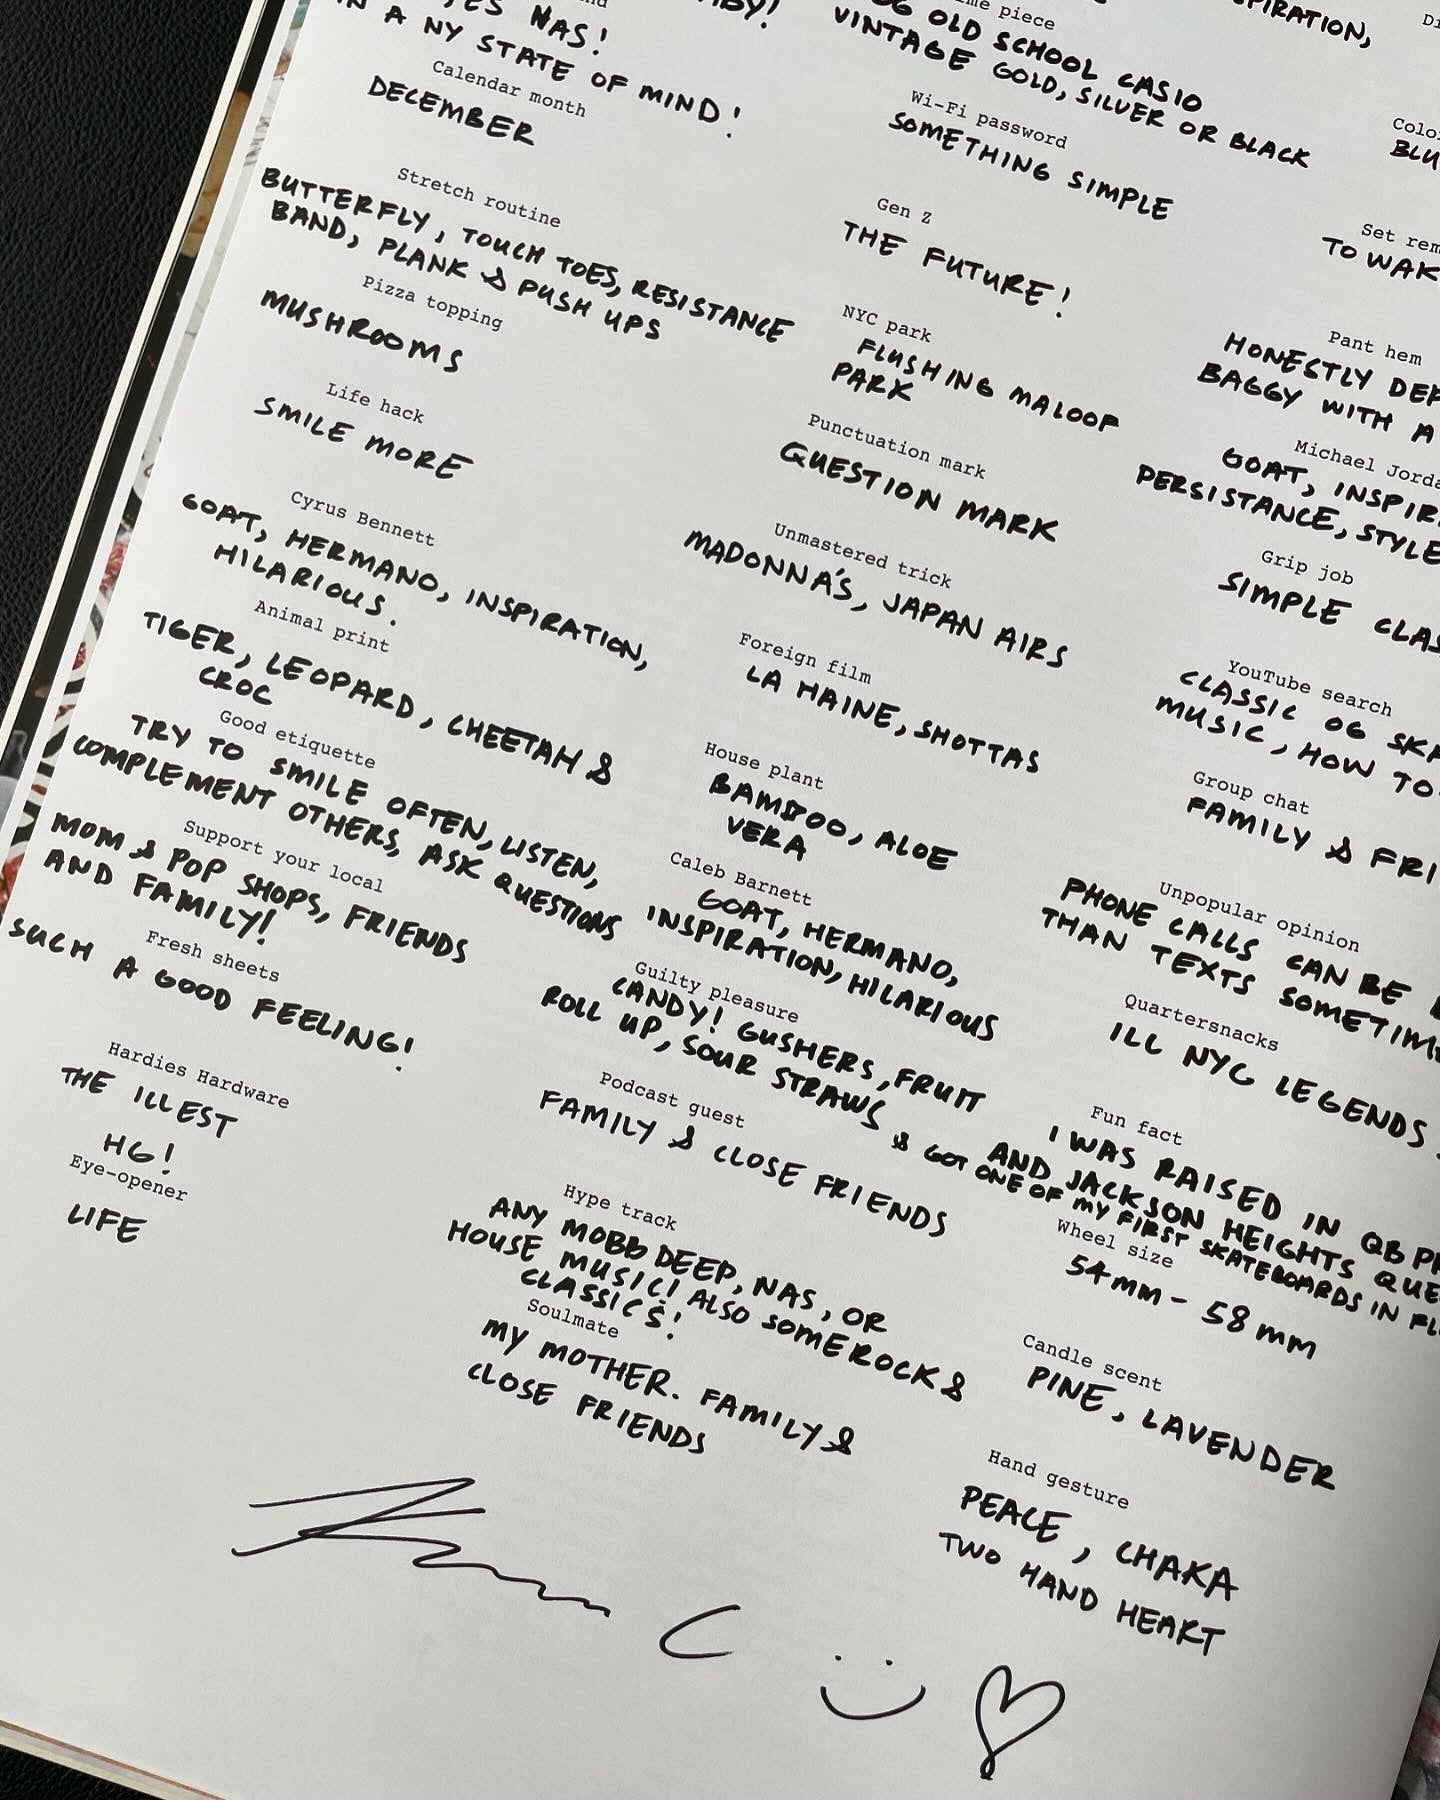 YES NAS!
IN A NY STATE OF MIND!
Calendar month
DECEMBER
Stretch routine
BUTTERFLY, TOUCH TOES, RESISTANCE
BAND, PLANK & PUSH UPS
Pizza topping
MUSHROOMS
Life hack
SMILE MORE
Cyrus Bennett
GOAT, HERMANO, INSPIRATION,
HILARIOUS.
Animal print
TIGER, LEOPARD, CHEETAH &
CROC
Good etiquette
TRY TO SMILE OFTEN, LISTEN,
COMPLEMENT OTHERS, ASK QUESTIONS
Support your local
MOM & POP SHOPS, FRIENDS
AND FAMILY!
Fresh sheets
SUCH A GOOD FEELING!
Hardies Hardware
THE ILLEST
HG!
Eye-opener
LIFE
piece
OG OLD SCHOOL CASIO
VINTAGE GOLD, SILVER OR BLACK
Wi-Fi password
SOMETHING SIMPLE
Gen Z
THE FUTURE!
NYC park
FLUSHING MALOOF
PARK
Punctuation mark
QUESTION MARK
Unmastered trick
MADONNA'S, JAPAN AIRS
Foreign film
LA HAINE, SHOTTAS
House plant
BAMBOO, ALOE
VERA
Caleb Barnett
GOAT, HERMANO,
INSPIRATION, HILARIOUS
Guilty pleasure
CANDY! GUSHERS, FRUIT
ROLL UP, SOUR STRAWS
Podcast guest
FAMILY & CLOSE FRIENDS
Hype track
ANY MOBB DEEP, NAS, OR
HOUSE MUSIC! ALSO SOME ROCK &
CLASSICS!
Soulmate
MY MOTHER. FAMILY &
CLOSE FRIENDS
Set rem
TO WAK
Pant hem
HONESTLY DEP
BAGGY WITH A
Michael Jorda
GOAT, INSPIR
PERSISTANCE, STYLE
Grip job
SIMPLE CLAS
YouTube search
CLASSIC OG SKA
MUSIC, HOW TO
Group chat
FAMILY & FRI
Unpopular opinion
PHONE CALLS CAN BE
THAN TEXTS SOMETIME
Quartersnacks
ILL NYC LEGENDS
Fun fact
I WAS RAISED IN QB
AND JACKSON HEIGHTS QUE
& GOT ONE OF MY FIRST SKATEBOARDS IN FL
Wheel size
54mm - 58mm
Candle scent
PINE, LAVENDER
Hand gesture
PEACE, CHAKA
TWO HAND HEART